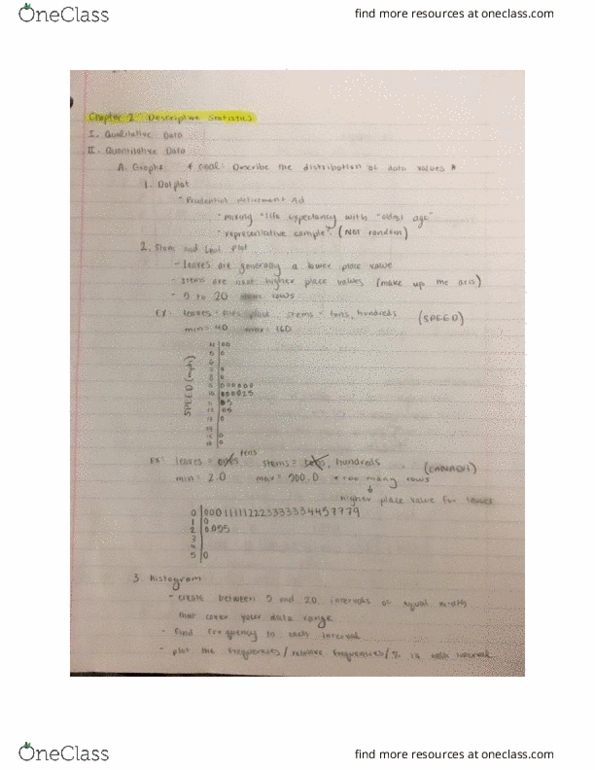 OneClass
find more resources at oneclass.com
Chapter 2 Descriptive Statistics
I. Qualitative Data
II. Quantitative Data
A. Graphs * Goal: Describe the distribution of data values *
1. Dotplot
- Prudential Retirement Ad
- mixing "life expectancy with "oldest age"
- representative sample? (Not random)
2. Stem and Leaf Plot
- leaves are generally a lower place value
- stems are next higher place values (make up the axis)
- 5 to 20 rows
EX: leaves = place stems = tens, hundreds (SPEED)
min = 40 max = 160
SPEED (mph)
4 00
5 0
tens
EX: leaves = ones stems = tens, hundreds
min: 2.0 max = 500.0 * too many rows
higher place value for leaves
0 00011111122233333344577 79
1 0
2 0055
3
4
5 0
3. Histogram
- create between 5 and 20 intervals of equal width
that cover your data range
- find frequency in each interval
- plot the frequencies/relative frequencies/% in each interval
OneClass
find more resources at oneclass.com